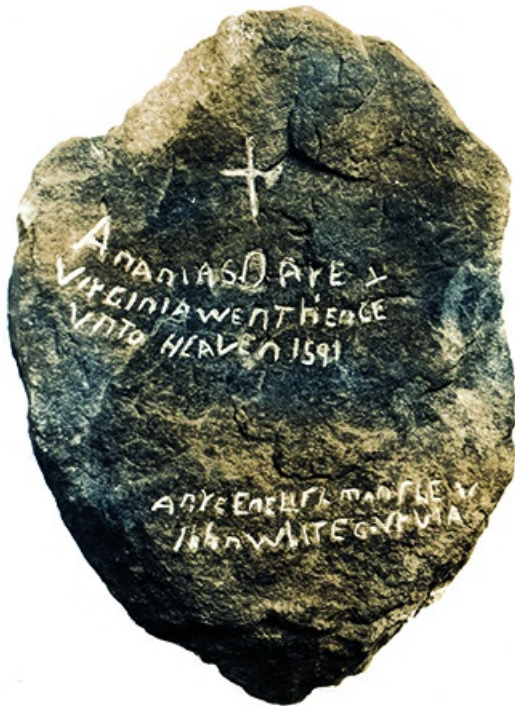 +
ANANIAS DARE &
VIRGINIA WENT HENCE
VNTO HEAVEN 1591
ANYE ENGLISHMAN SHEW
IOHN WHITE GOVR VIA